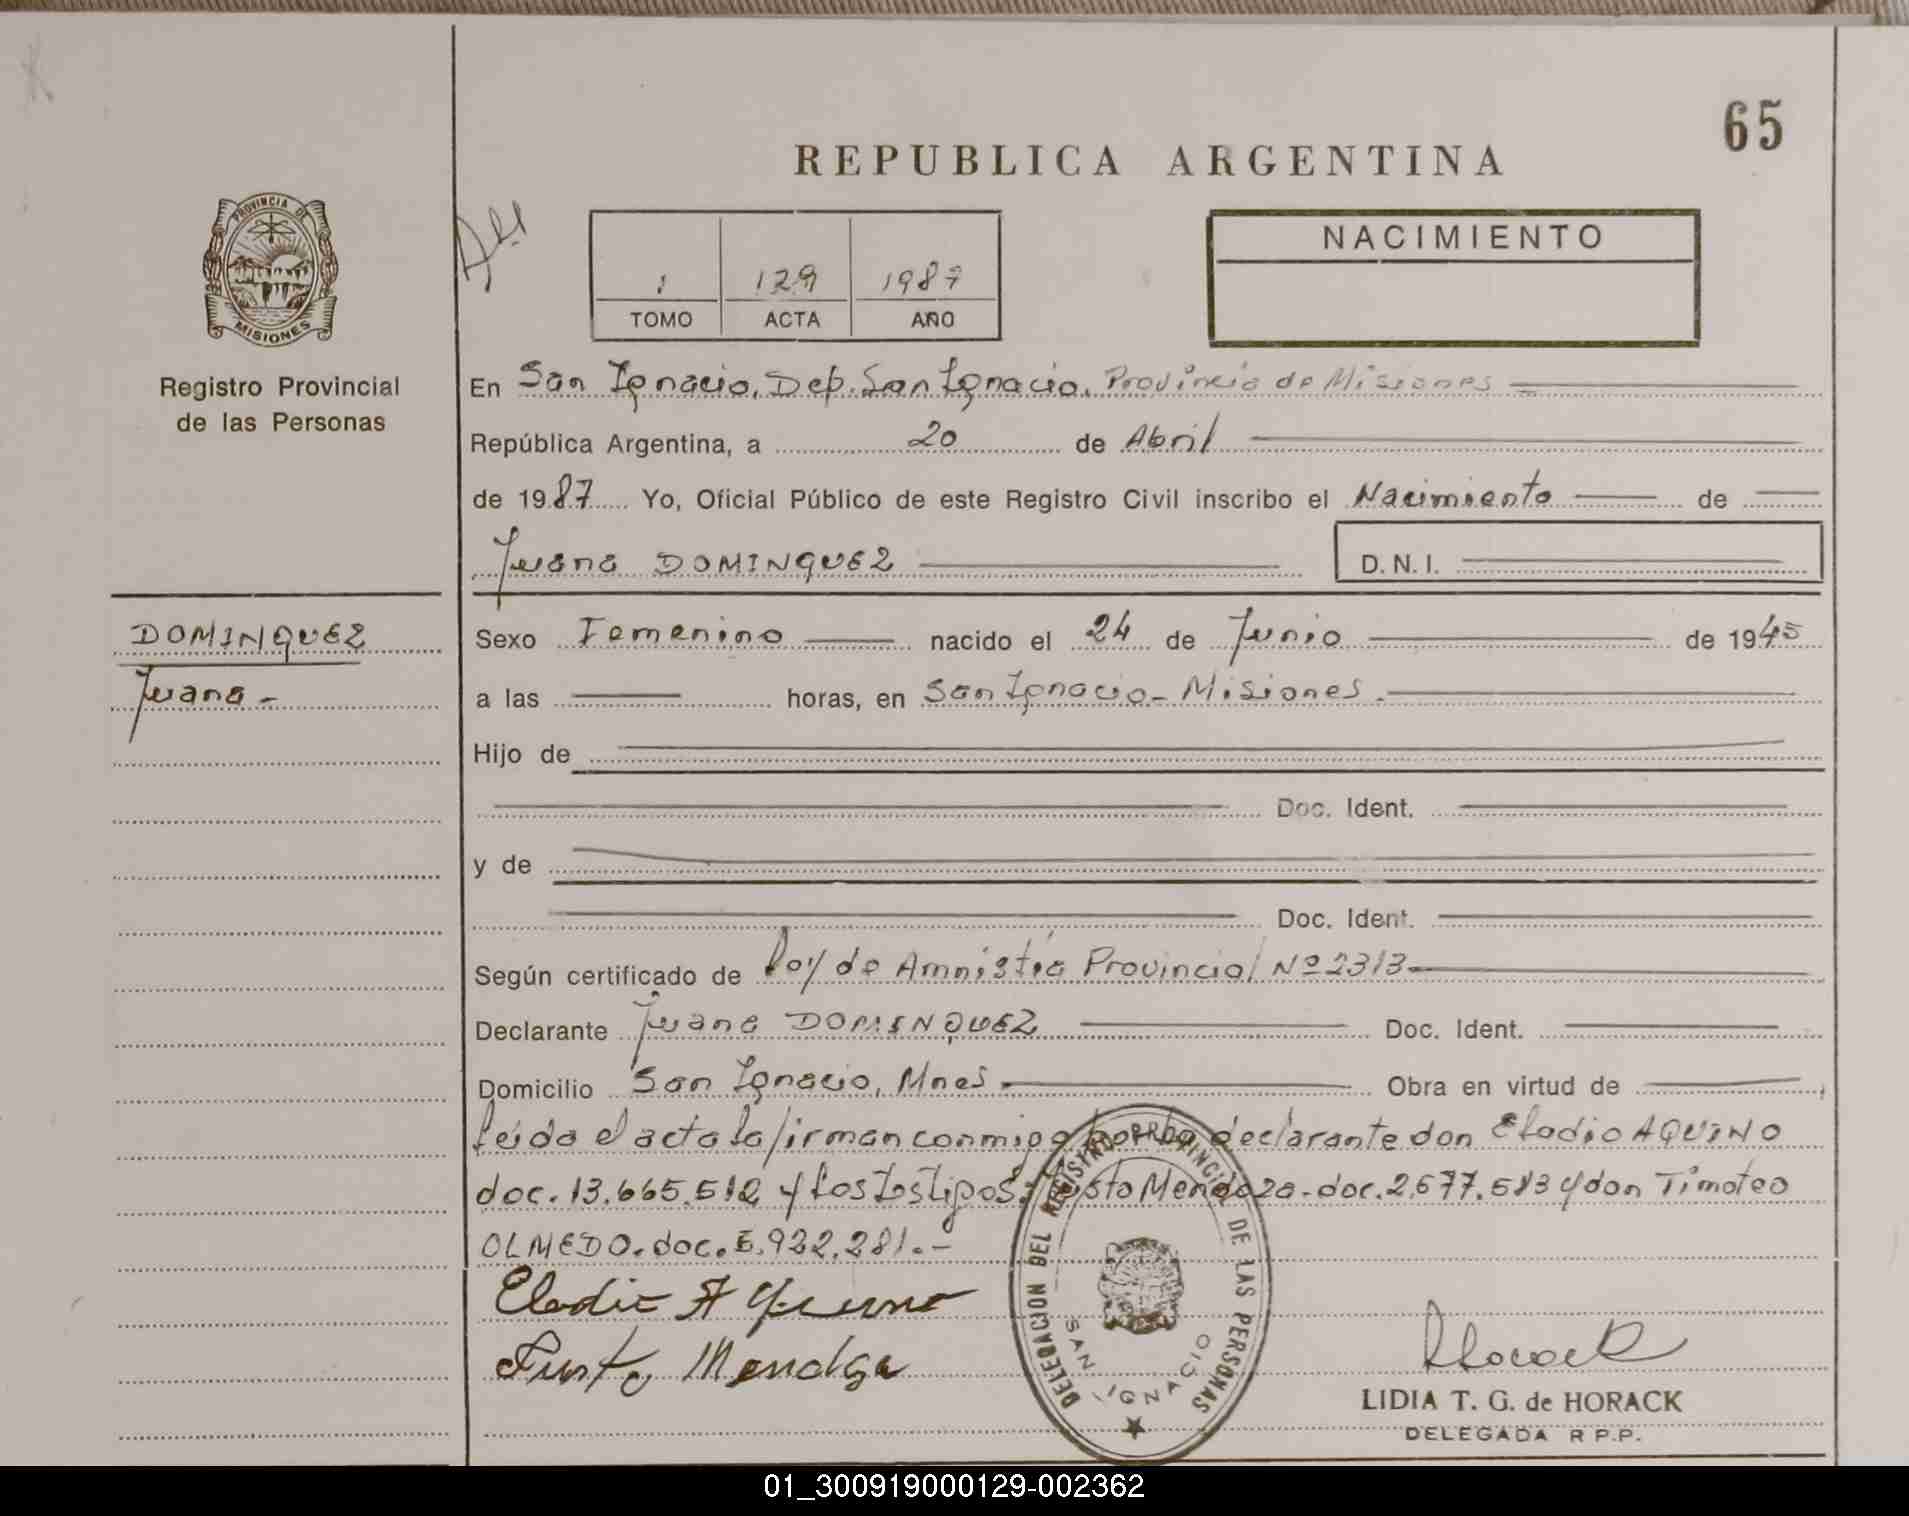 65
REPUBLICA ARGENTINA
PROVINCIA DE
MISIONES
Registro Provincial
de las Personas
1 129 1987
TOMO ACTA AÑO
NACIMIENTO
En San Ignacio, Dep. San Ignacio, Provincia de Misiones
República Argentina, a 20 de Abril
de 1987 Yo, Oficial Público de este Registro Civil inscribo el Nacimiento de
Juana DOMINQUEZ D.N.I.
DOMINQUEZ
Juana -
Sexo Femenino nacido el 24 de Junio de 1945
a las horas, en San Ignacio - Misiones.
Hijo de
Doc. Ident.
y de
Doc. Ident.
Según certificado de ley de Amnistía Provincial Nº 2313
Declarante Juana DOMINQUEZ Doc. Ident.
Domicilio San Ignacio, Mnes Obra en virtud de
leída el acta la firman conmigo por la declarante don Eladio AQUINO
doc. 13.665.512 y los testigos: Justo Mendoza - doc. 2.677.583 y don Timoteo
OLMEDO. doc. 5.922.281.-
Eladio Aquino
Justo Mendoza
DELEGACION DEL REGISTRO PROVINCIAL DE LAS PERSONAS
SAN IGNACIO
Horack
LIDIA T. G. de HORACK
DELEGADA R P.P.
01_300919000129-002362